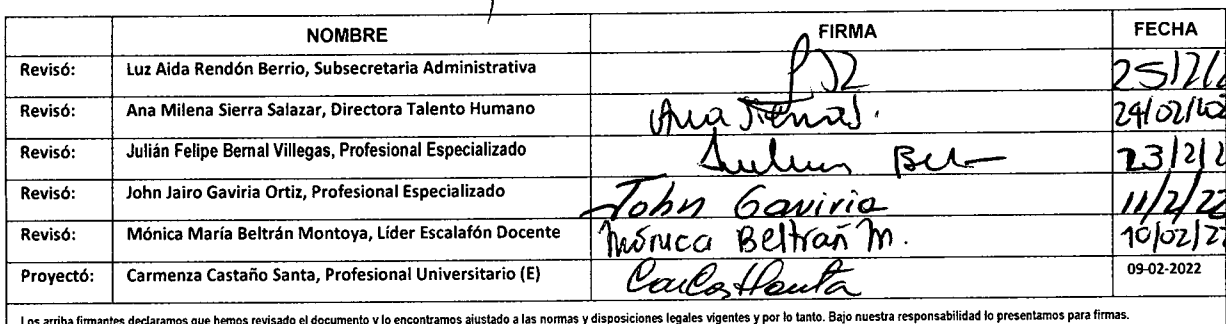 NOMBRE FIRMA FECHA
Revisó: Luz Aida Rendón Berrio, Subsecretaria Administrativa
Revisó: Ana Milena Sierra Salazar, Directora Talento Humano 24/02/
Revisó: Julián Felipe Bernal Villegas, Profesional Especializado 23/2/
Revisó: John Jairo Gaviria Ortiz, Profesional Especializado John Gaviria 11/2/22
Revisó: Mónica María Beltrán Montoya, Líder Escalafón Docente Mónica Beltrán M. 10/02/22
Proyectó: Carmenza Castaño Santa, Profesional Universitario (E) 09-02-2022
Los arriba firmantes declaramos que hemos revisado el documento y lo encontramos ajustado a las normas y disposiciones legales vigentes y por lo tanto. Bajo nuestra responsabilidad lo presentamos para firmas.